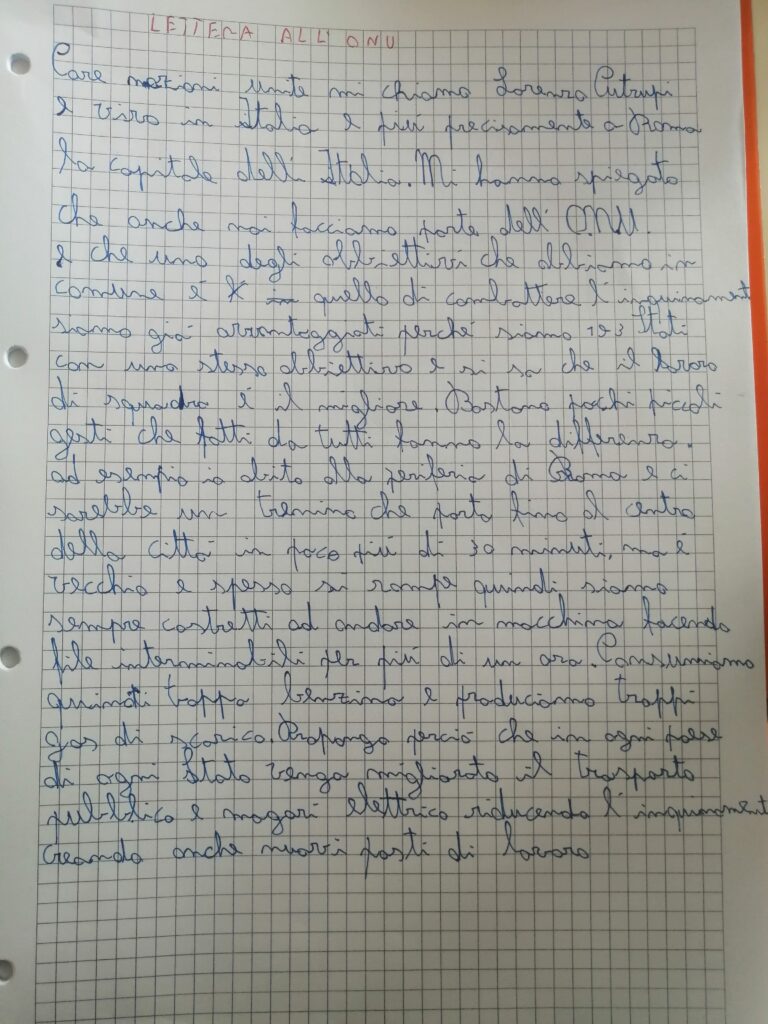 LETTERA ALL' ONU
Care nazioni unite mi chiamo Lorenzo Cutrupi
e vivo in Italia e più precisamente a Roma
la capitale dell' Italia. Mi hanno spiegato
che anche noi facciamo parte dell' O.N.U.
e che uno degli obbiettivi che abbiamo in
comune è quello di combattere l'inquinament
siamo già avvantaggiati perché siamo 193 Stati
con uno stesso obbiettivo e si sa che il lavoro
di squadra è il migliore. Bastano pochi piccoli
gesti che fatti da tutti fanno la differenza.
ad esempio io abito alla periferia di Roma e ci
sarebbe un trenino che porta fino al centro
della città in poco più di 30 minuti, ma è
vecchio e spesso si rompe quindi siamo
sempre costretti ad andare in macchina facendo
file interminabili per più di un ora. Consumiamo
quindi troppa benzina e produciamo troppi
gas di scarico. Propongo perciò che in ogni paese
di ogni Stato venga migliorato il trasporto
pubblico e magari elettrico riducendo l'inquinament
creando anche nuovi posti di lavoro